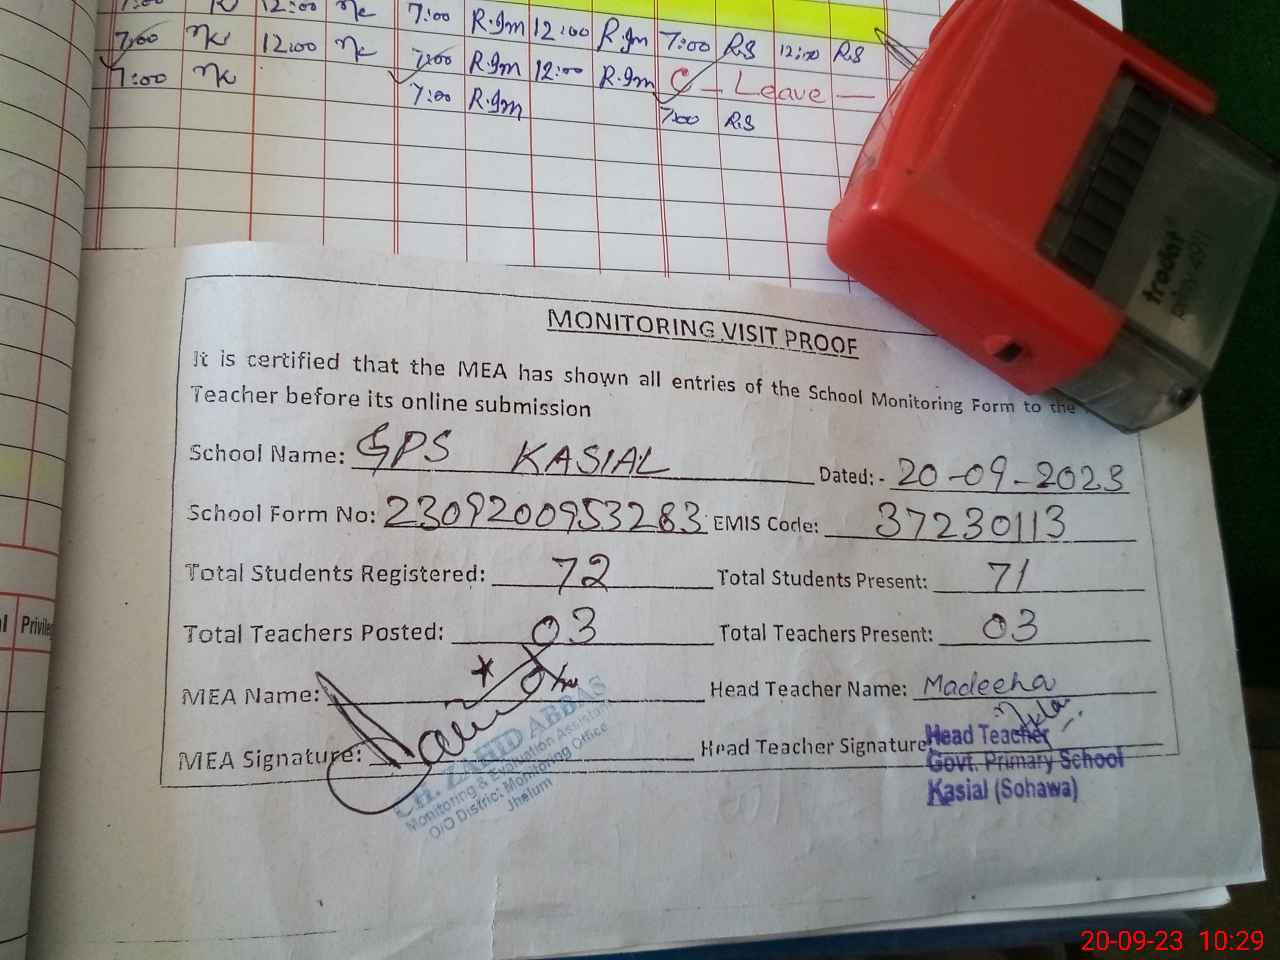 7:00 12:00 7:00 R.Im 12:00 R.Im 7:00 R.S 12:00 R.S
7:00 12:00 7:00 R.Im 12:00 R.Im C - Leave -
7:00 7:00 R.Im 7:00 R.S
trodat
printy 4911
MONITORING VISIT PROOF
It is certified that the MEA has shown all entries of the School Monitoring Form to the
Teacher before its online submission
School Name: GPS KASIAL Dated:- 20-09-2023
School Form No: 2309200953283 EMIS Code: 37230113
Total Students Registered: 72 Total Students Present: 71
Total Teachers Posted: 03 Total Teachers Present: 03
MEA Name: Head Teacher Name: Madeeha
MEA Signature: Head Teacher Signature
CH. ZAHID ABBAS
Monitoring & Evaluation Assistant
O/O District Monitoring Office
Jhelum
Head Teacher
Govt. Primary School
Kasial (Sohawa)
l Privile
20-09-23 10:29